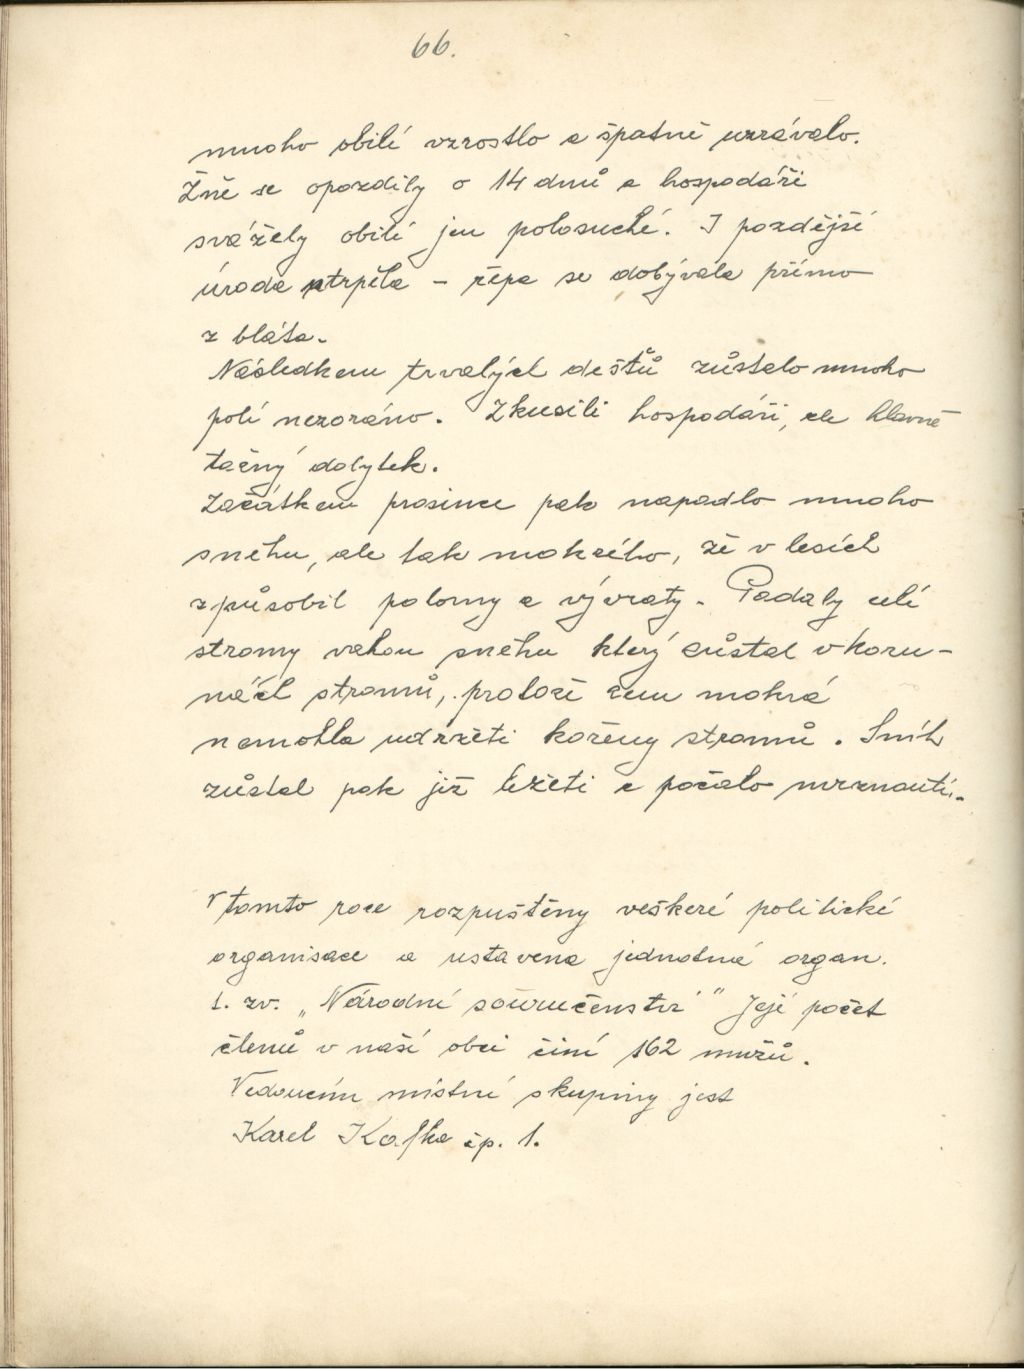 66.
mnoho obilí vzrostlo a špatně uzrávalo.
Žně se opozdily o 14 dnů a hospodáři
svážely obilí jen polosuché. I pozdější
úroda utrpěla – řepa se dobývala přímo
z bláta.
Následkem trvalých deštů zůstalo mnoho
polí nezoráno. Zkusili hospodáři, ale hlavně
tažný dobytek.
Začátkem prosince pak napadlo mnoho
sněhu, ale tak mokrého, že v lesích
způsobil polomy a vývraty. Padaly celé
stromy vahou sněhu který zůstal v koru-
nách stromů, protože zem mokrá
nemohla udržeti kořeny stromů. Sníh
zůstal pak již ležeti a počalo mrznouti.
V tomto roce rozpuštěny veškeré politické
organisace a ustavena jednotná organ.
t. zv. „Národní souručenství" Její počet
členů v naší obci činí 162 mužů.
Vedoucím místní skupiny jest
Karel Kafka čp. 1.